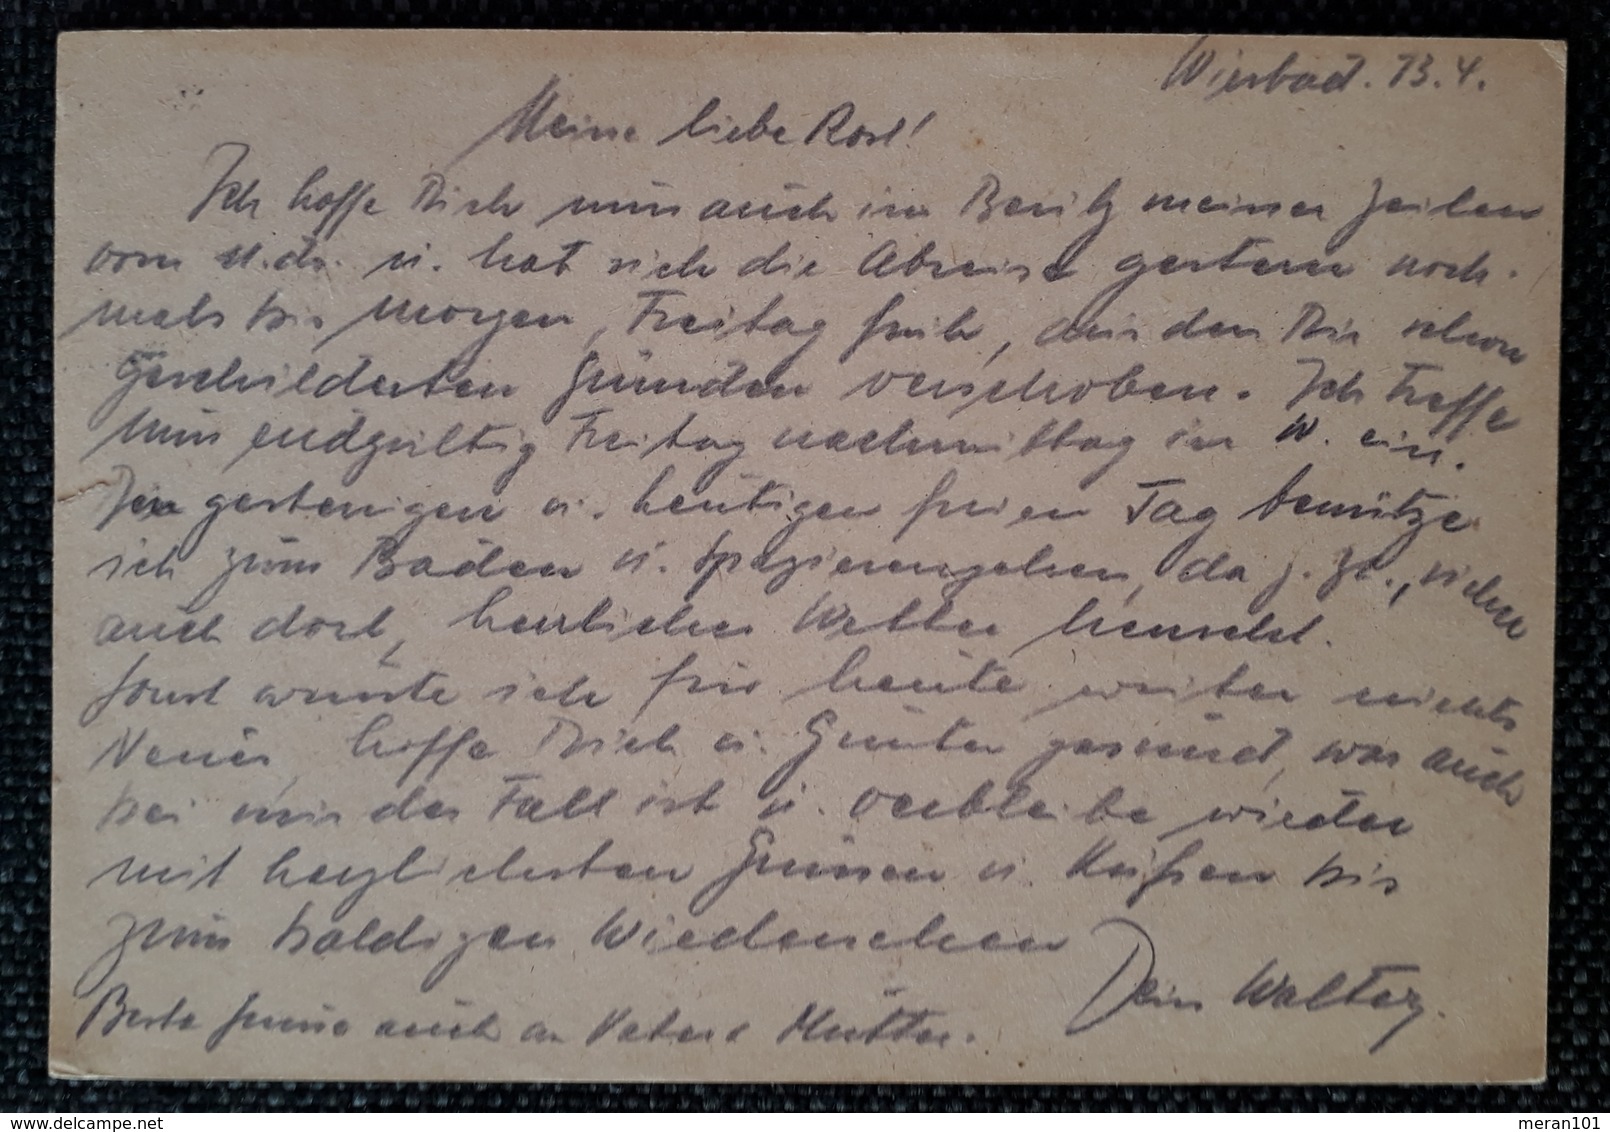 Wiesbad. 13.4.
Meine liebe Rosl!
Ich hoffe Dich nun auch im Besitz meiner Zeilen
vom 11. ds. u. hat sich die Abreise gestern noch-
mals bis morgen, Freitag früh, aus den Dir schon
geschilderten Gründen verschoben. Ich treffe
nun endgültig Freitag nachmittag in W. ein.
Den gestrigen u. heutigen freien Tag benütze
ich zum Baden u. Spazierengehen, da z. Zt., sicher
auch dort, herrliches Wetter herrscht.
Sonst wüsste ich für heute weiter nichts
Neues, hoffe Dich u. Günter gesund, was auch
bei mir der Fall ist u. verbleibe wieder
mit herzlichsten Grüssen u. Küssen bis
zum baldigen Wiedersehen
Dein Walter.
Beste Grüsse auch an Vater u. Mutter.
delcampe.net
meran101